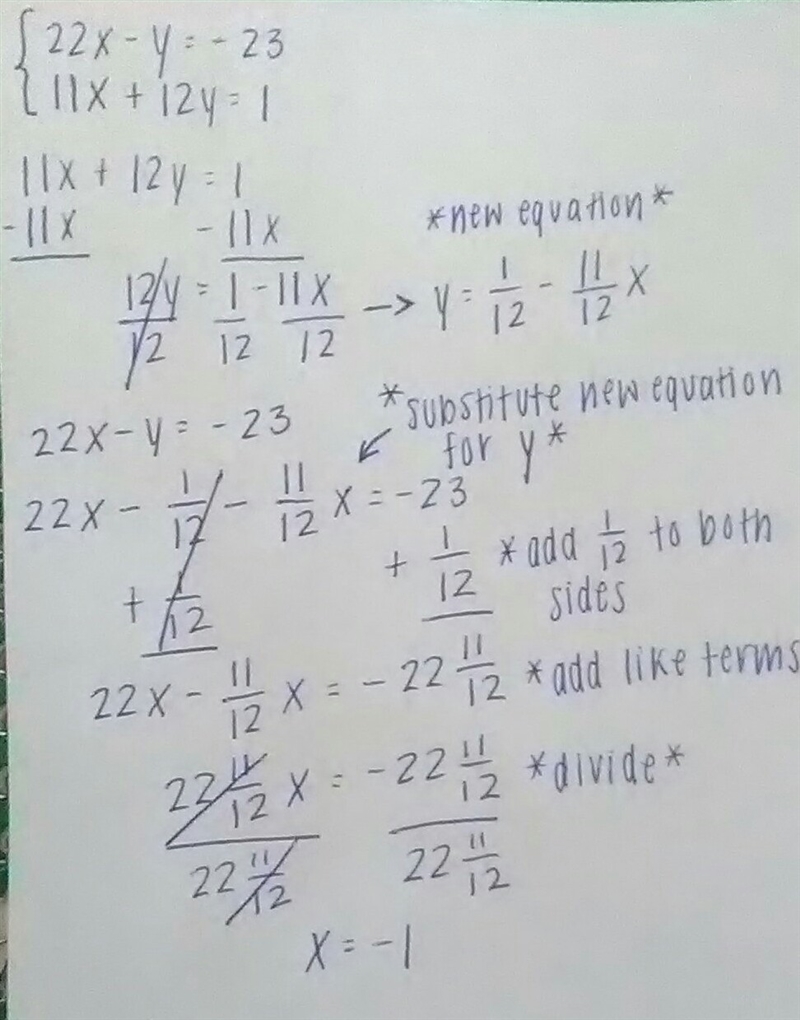 { 22x - y = - 23
11x + 12y = 1
11x + 12y = 1
-11x - 11x
*new equation*
12y/12 = 1/12 - 11x/12 → y = 1/12 - 11/12 x
22x - y = - 23
*substitute new equation
for y*
22x - 1/12 - 11/12 x = -23
+ 1/12 + 1/12 *add 1/12 to both
sides
22x - 11/12 x = - 22 11/12 *add like terms
22 11/12 x = -22 11/12 *divide*
22 11/12 22 11/12
x = -1